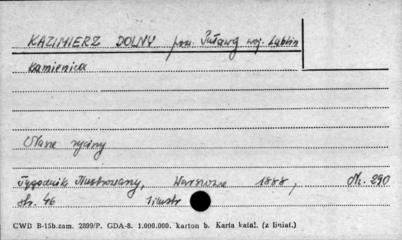 KAZIMIERZ DOLNY pow. Puławy woj. Lublin
Kamienica
Tygodnik Ilustrowany, Warszawa 1888, Nr. 290
str. 46 ilustr
CWD B-15b.zam. 2899/P. GDA-8. 1.000.000. karton b. Karta katal. (z liniat.)